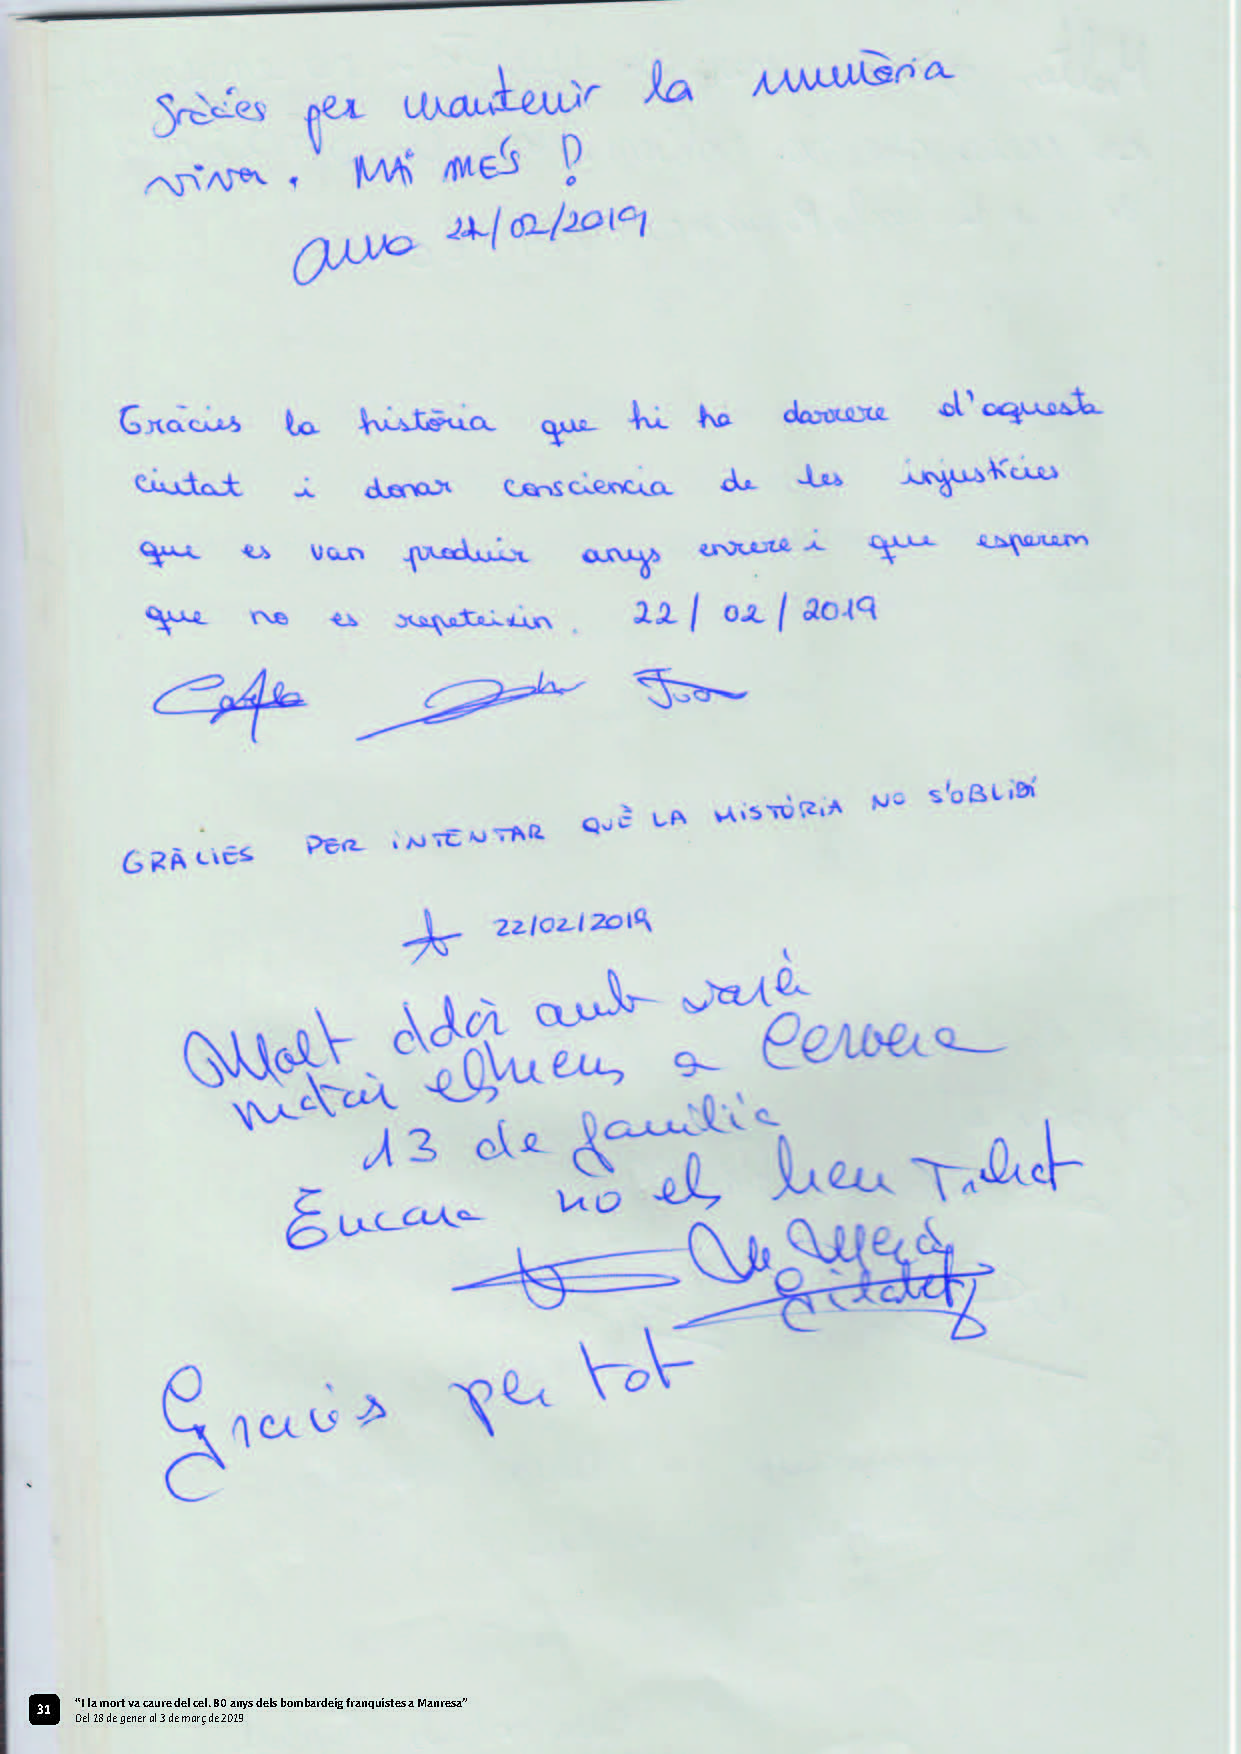 Gràcies per mantenir la memòria
viva. MAI MÉS!
22/02/2019
Gràcies la història que hi ha darrere d'aquesta
ciutat i donar consciencia de les injustícies
que es van produir anys enrere i que esperem
que no es repeteixin. 22/02/2019
GRÀCIES PER INTENTAR QUÈ LA HISTÒRIA NO S'OBLIDI
22/02/2019
Molt amb
a Cervera
13 de família
Encara no els heu
Gracis per tot
31
“I la mort va caure del cel. 80 anys dels bombardeig franquistes a Manresa”
Del 18 de gener al 3 de març de 2019